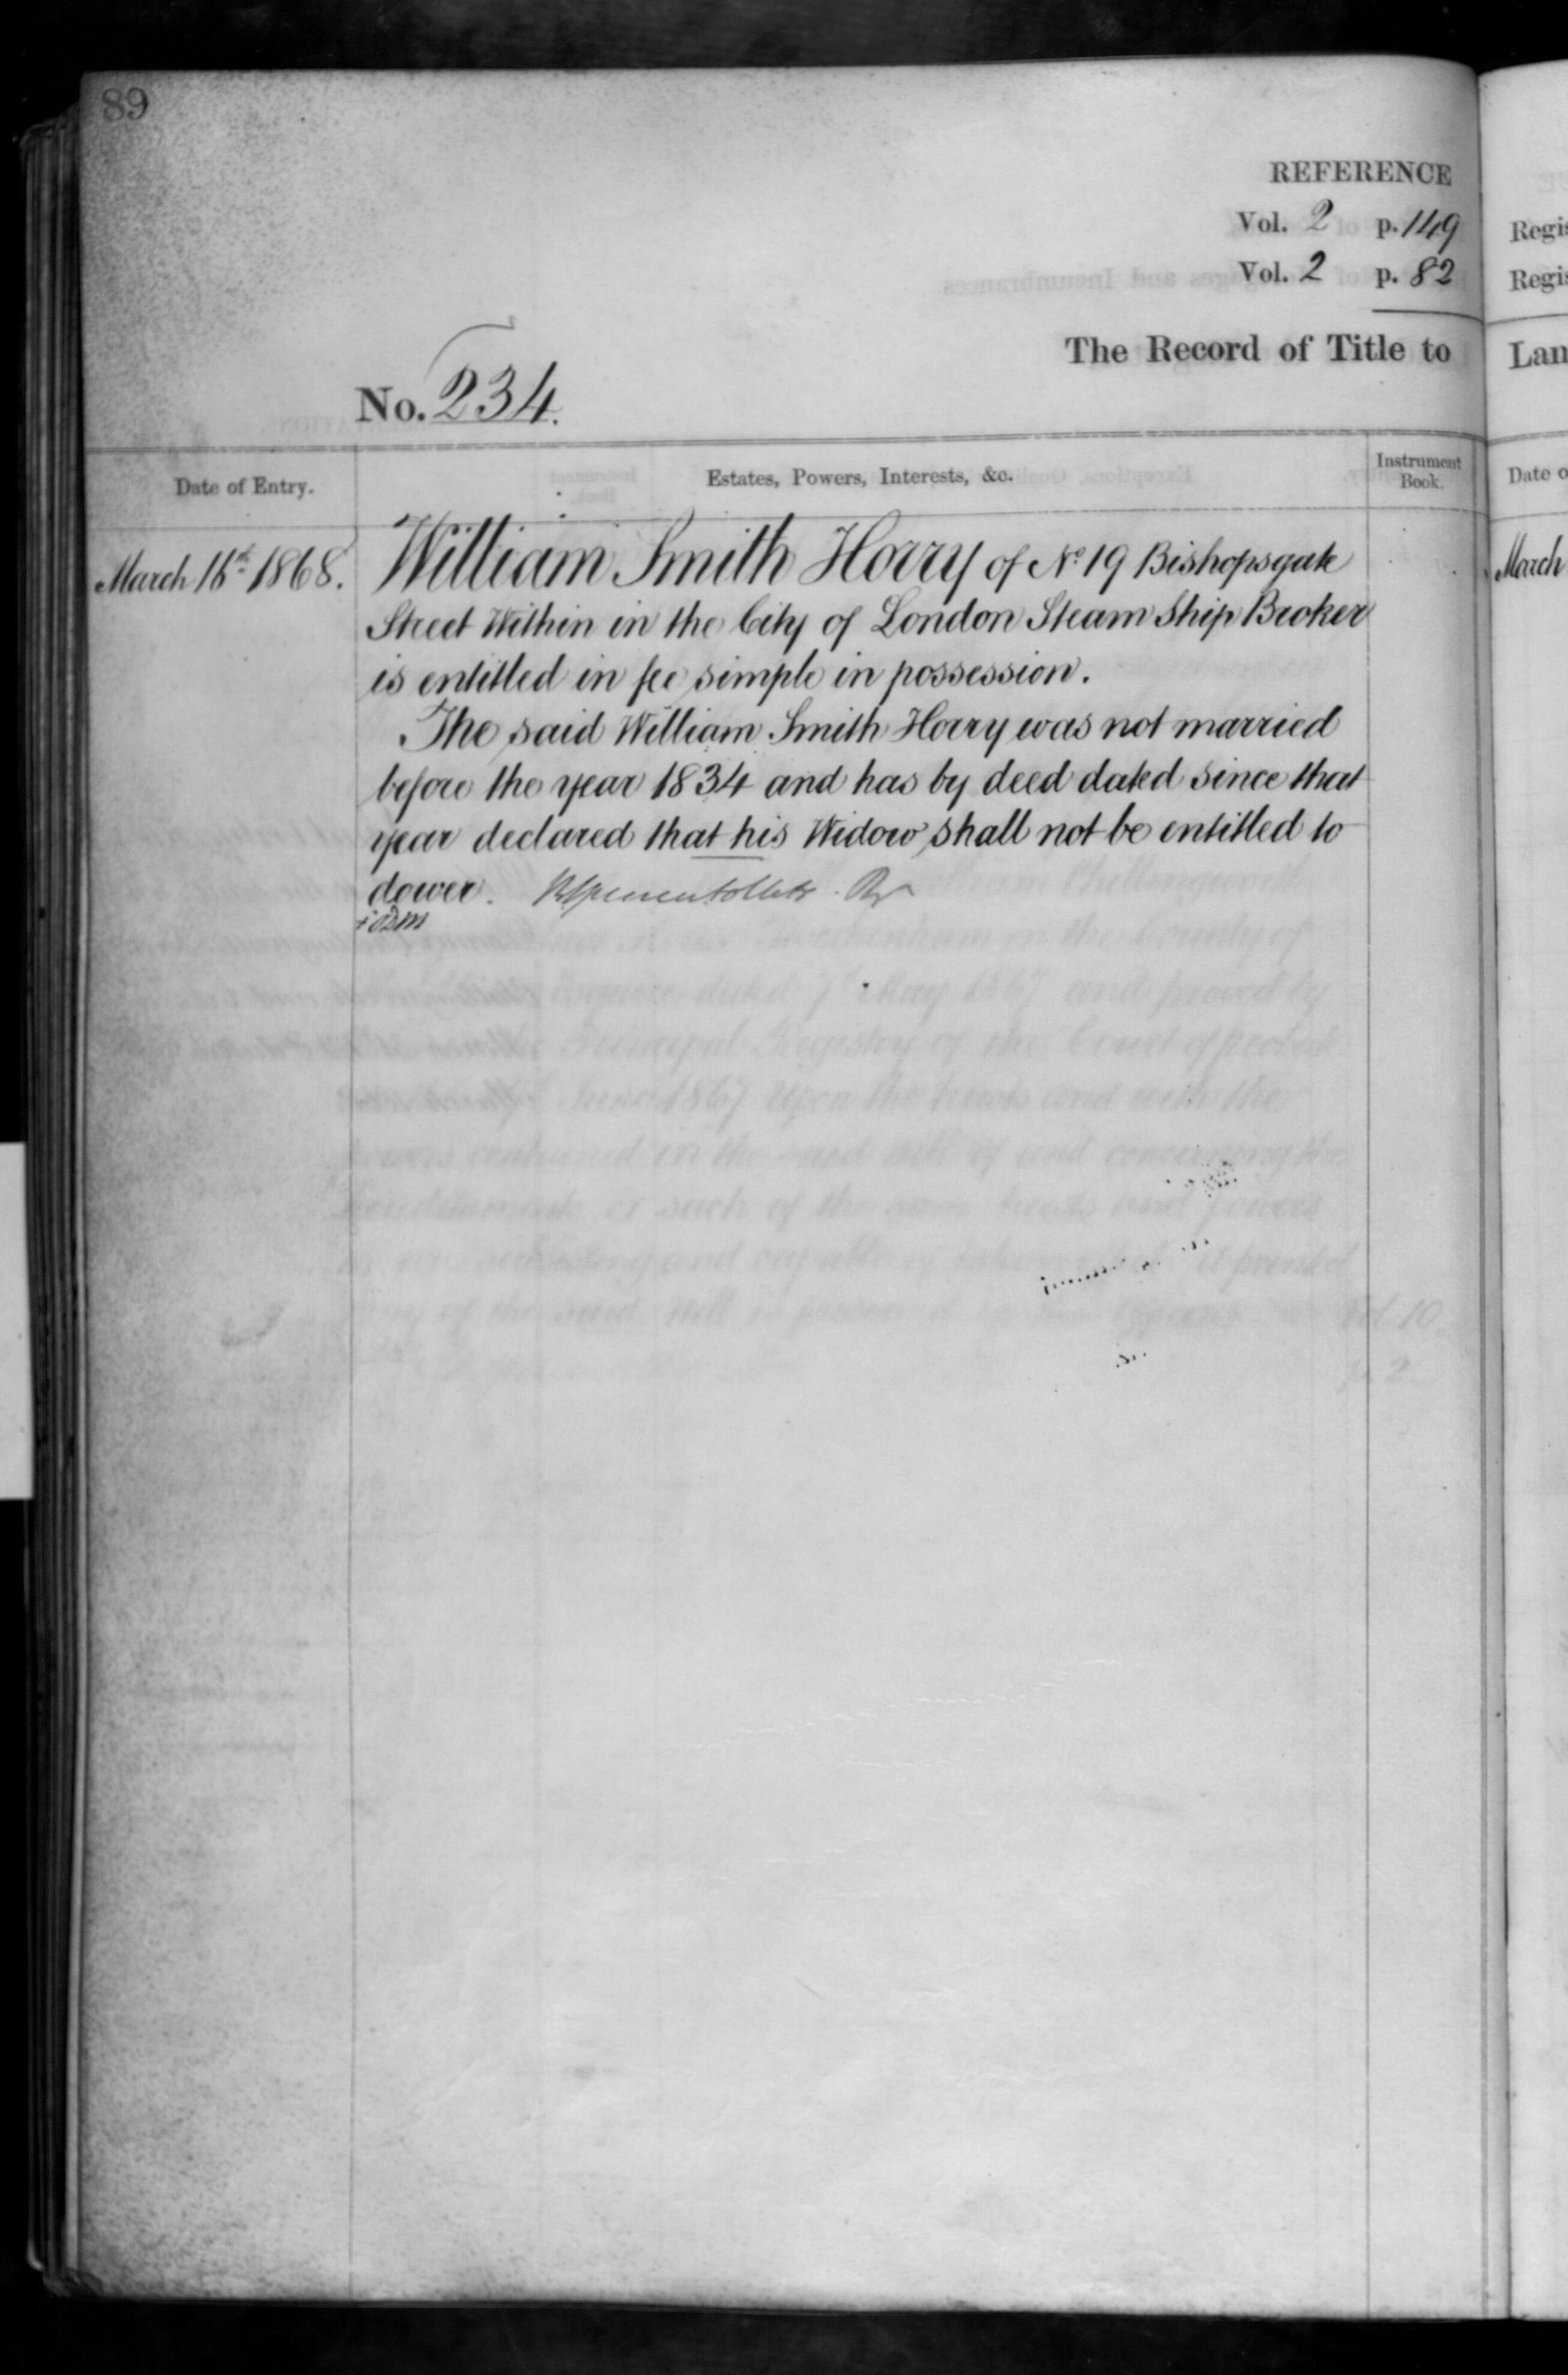 89
REFERENCE
Vol. 2 p. 149
Vol. 2 p. 82
The Record of Title to
No. 234.
Date of Entry.
Estates, Powers, Interests, &c.
Instrument
Book.
March 16th 1868.
William Smith Horry of No 19 Bishopsgate
Street Within in the City of London Steam Ship Broker
is entitled in fee simple in possession.
The said William Smith Horry was not married
before the year 1834 and has by deed dated since that
year declared that his Widow shall not be entitled to
dower.
Regis
Regis
Lan
Date o
March